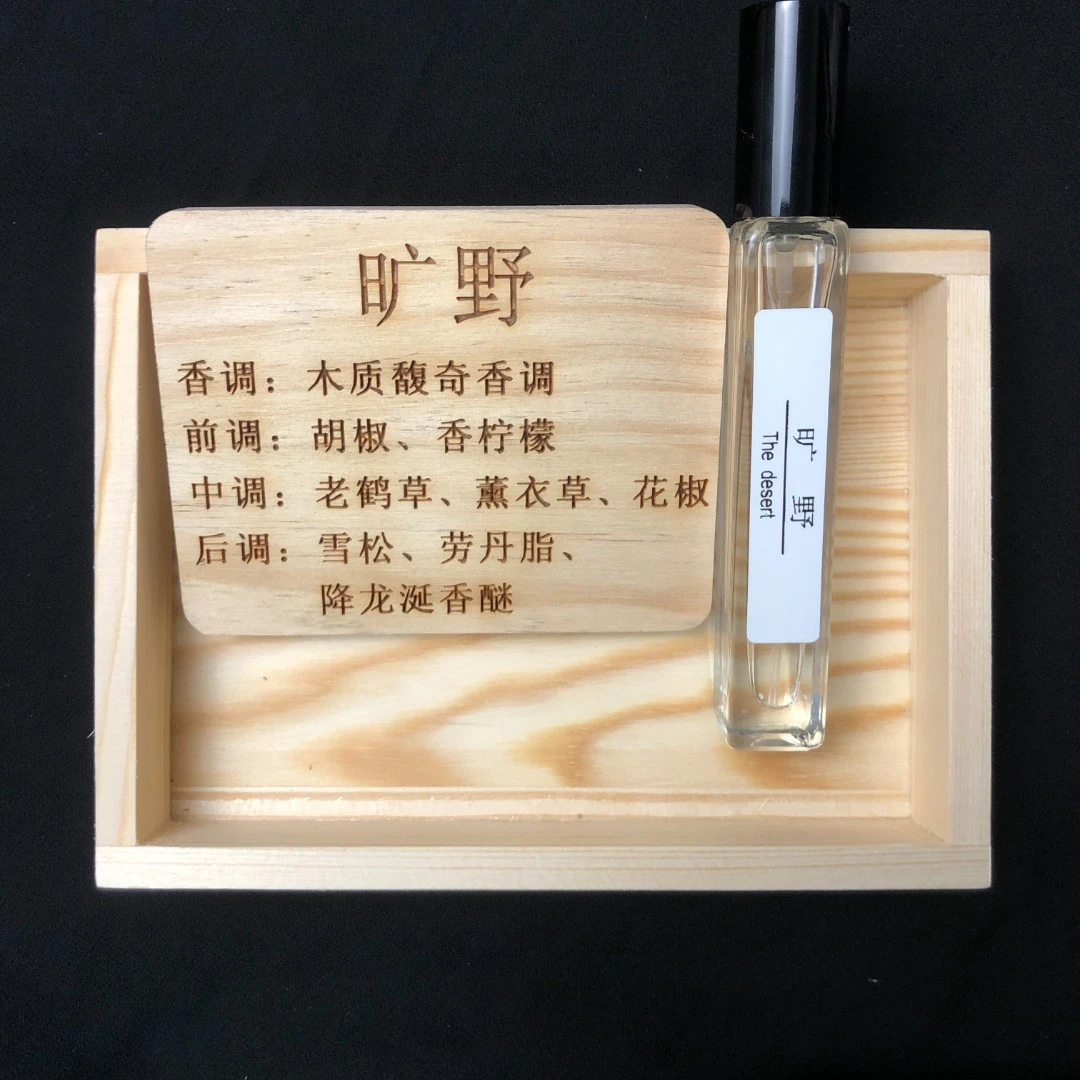 旷野
香调：木质馥奇香调
前调：胡椒、香柠檬
中调：老鹤草、薰衣草、花椒
后调：雪松、劳丹脂、
降龙涎香醚
旷野
The desert